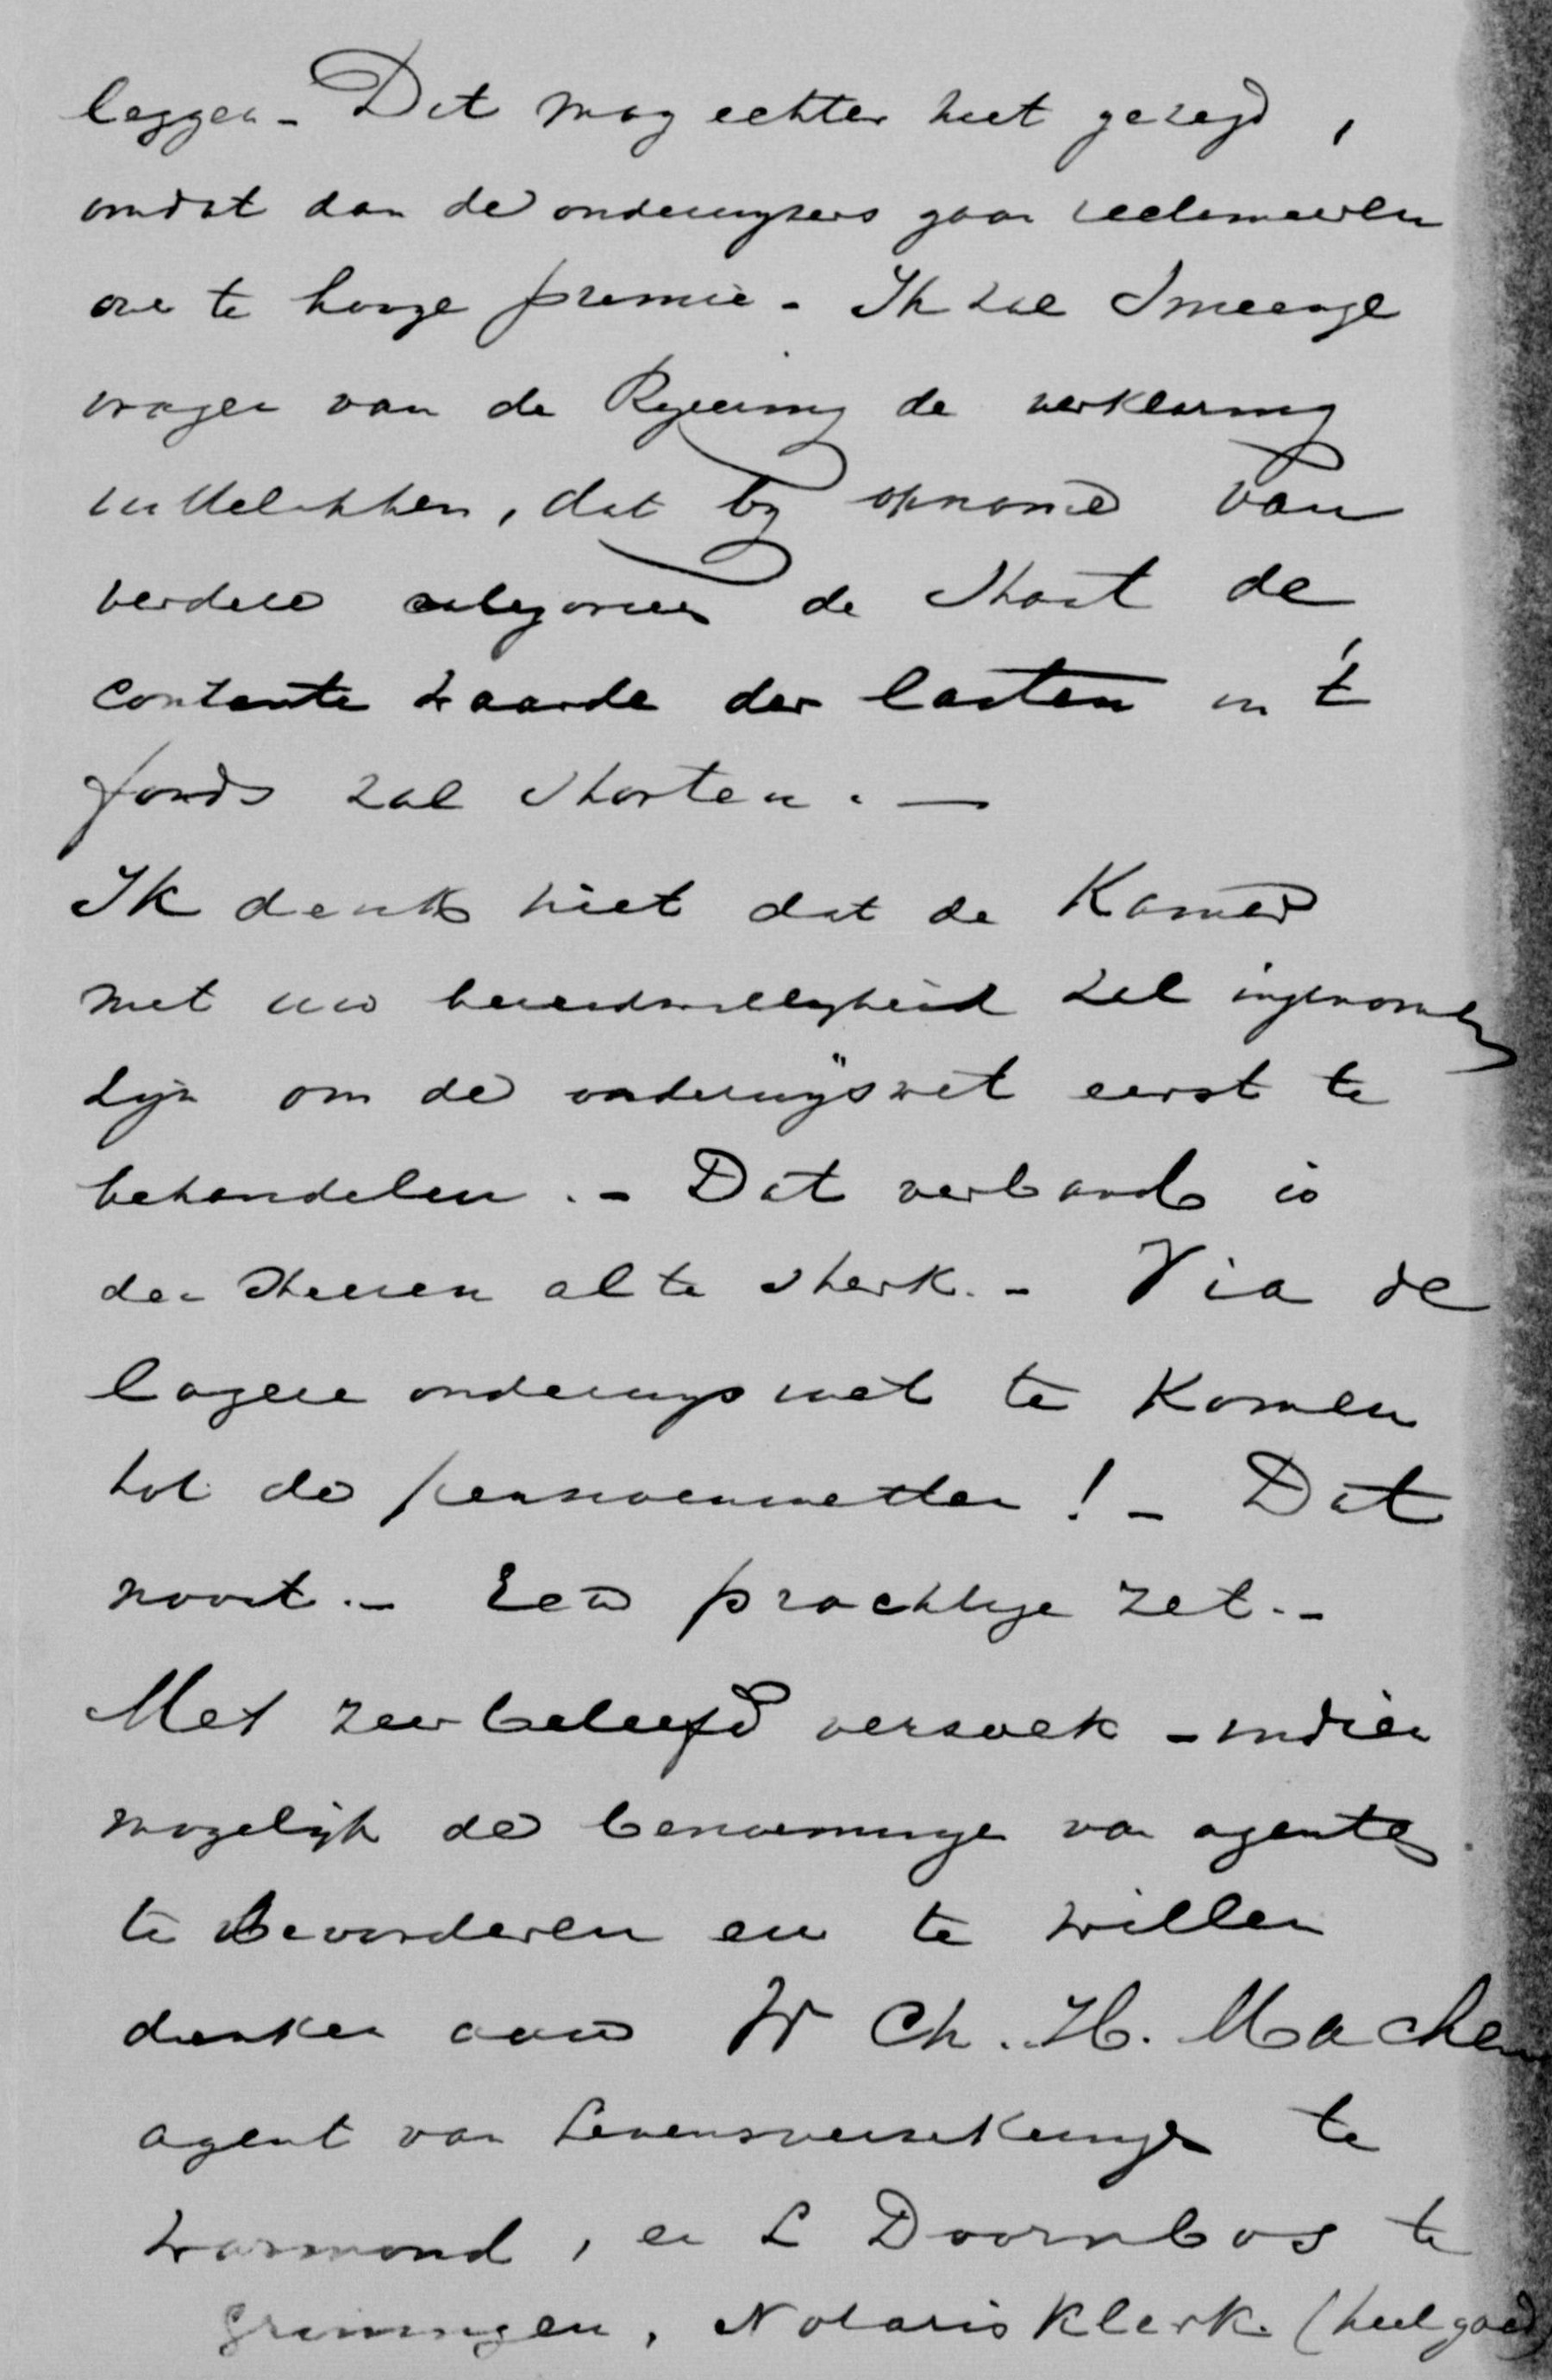 leggen - Dit mag echter niet gezegd,
omdat dan de onderwijzers gaan reclameeren
over te hooge premie. - Ik zal Smeenge
vragen van de Regeering de verklaring
uit te lokken, dat bij opname van
verdere categorieen de Staat de
contante waarde der lasten in 't
fonds zal storten. —
Ik denk niet dat de Kamer
met uw bereidwilligheid zal ingenomen
zijn om de onderwijswet eerst te
behandelen. - Dat verband is
den Heeren al te sterk. - Via de
lagere onderwijswet te komen
tot de pensioenwetten! - Dat
nooit. - Een prachtige zet. -
Met zeer beleefd verzoek - indien
mogelijk de benoeminge van agenten
te bevorderen en te willen
denken aan W Ch. H. Machen
agent van Levensverzekeringen te
Warmond, en L Doornbos te
Groningen, Notarisklerk. (heel goed)